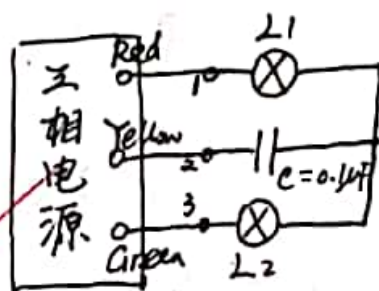 三相电源
Red
L1
1
Yellow
2
C=0.1μF
3
Green
L2